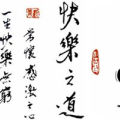 快樂之道
常懷感激之心
一生快樂無窮